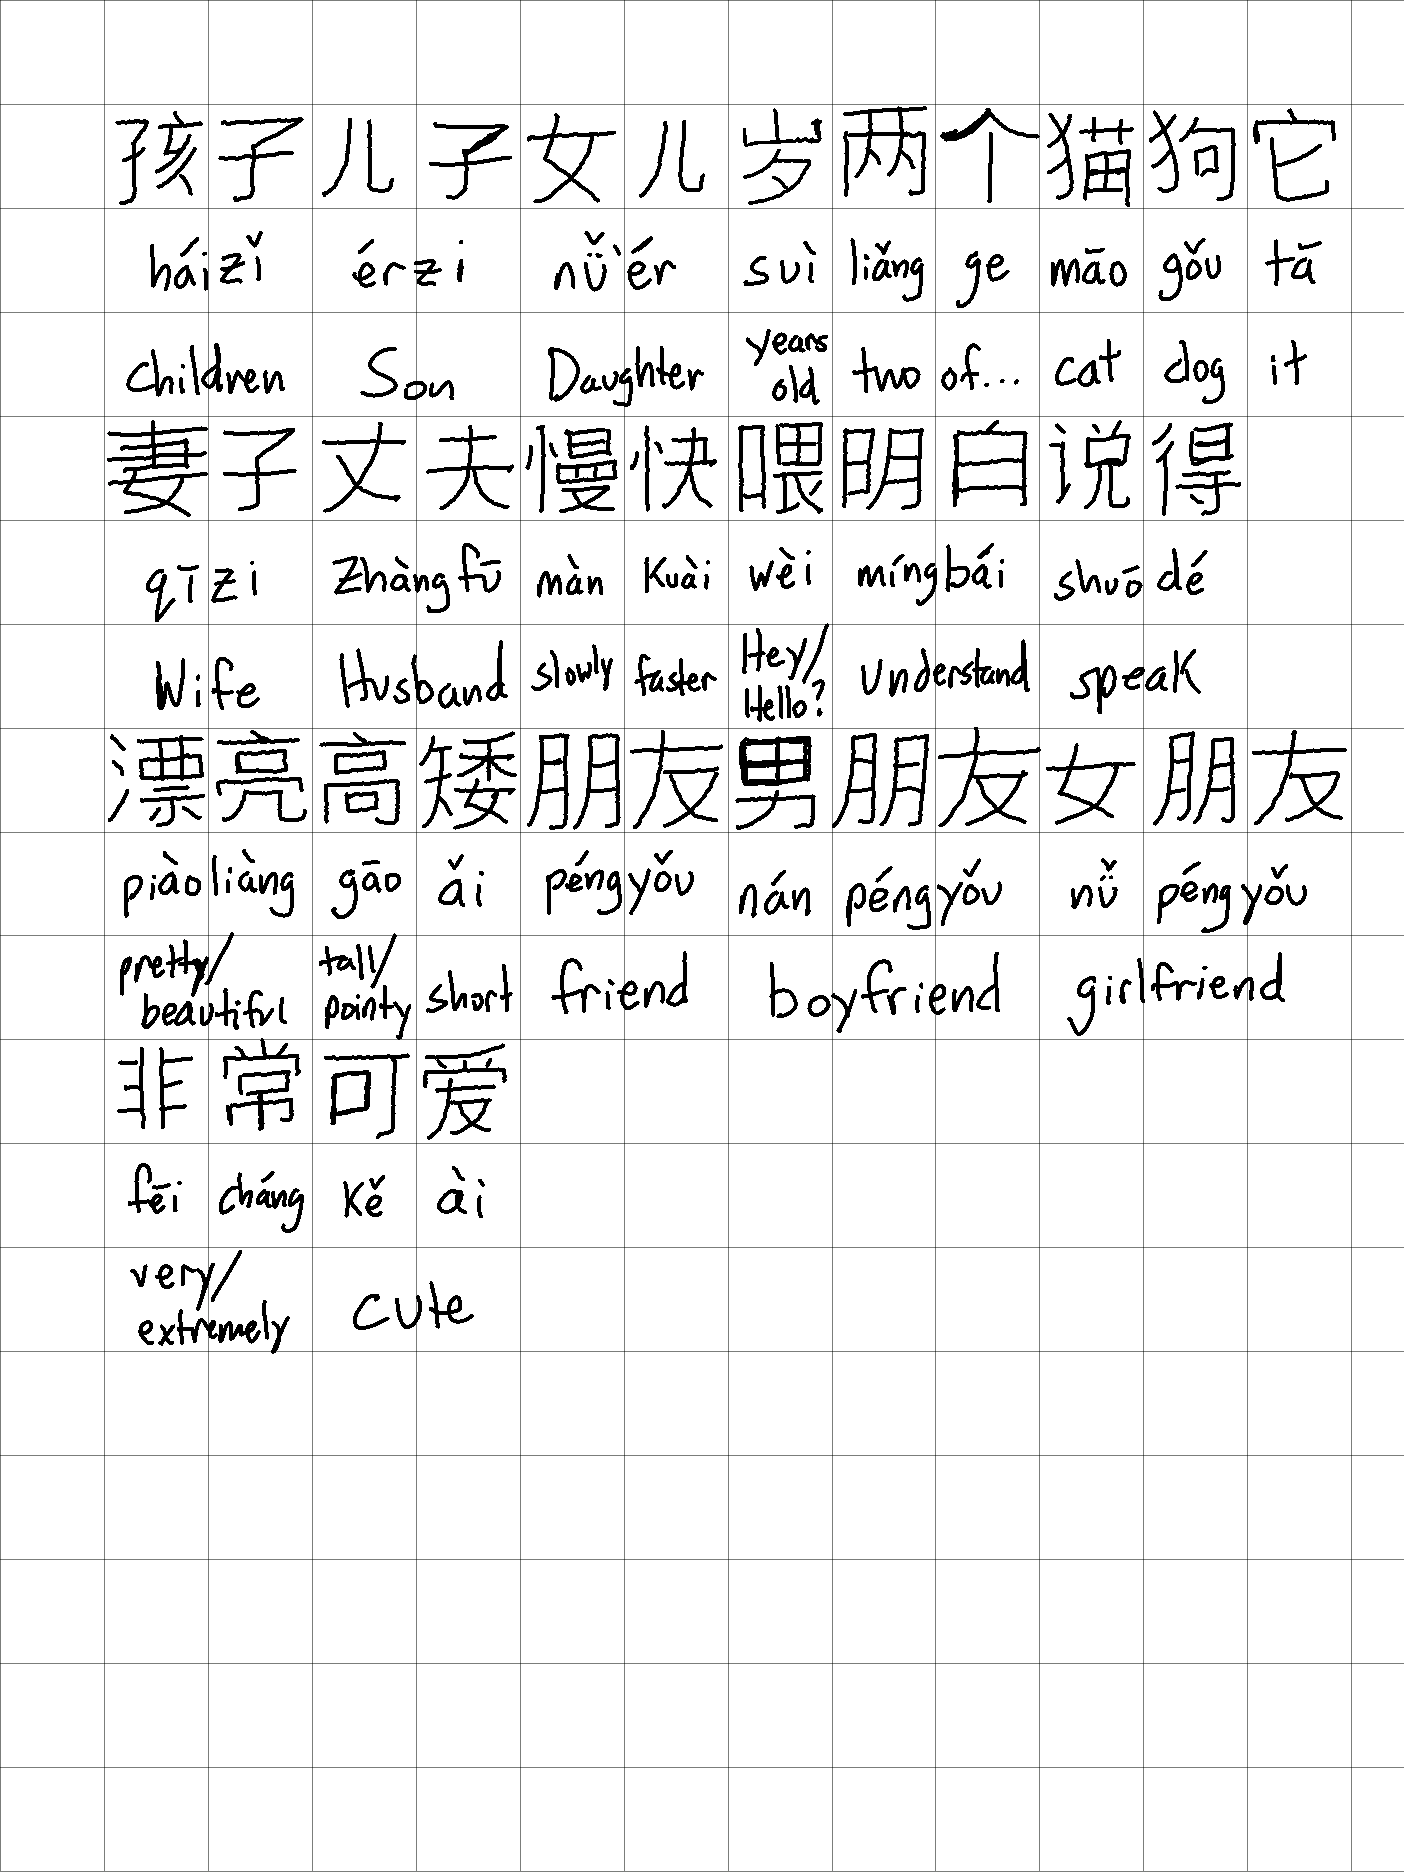 孩子儿子女儿岁两个猫狗它
háizǐ érzi nǚ'ér suì liǎng ge māo gǒu tā
children Son Daughter years old two of... cat dog it
妻子丈夫慢快喂明白说得
qīzi zhàngfū màn kuài wèi míngbái shuōdé
Wife Husband slowly faster Hey/Hello? understand speak
漂亮高矮朋友男朋友女朋友
piàoliàng gāo ǎi péngyǒu nán péngyǒu nǚ péngyǒu
pretty/beautiful tall/pointy short friend boyfriend girlfriend
非常可爱
fēi cháng kě ài
very/extremely cute